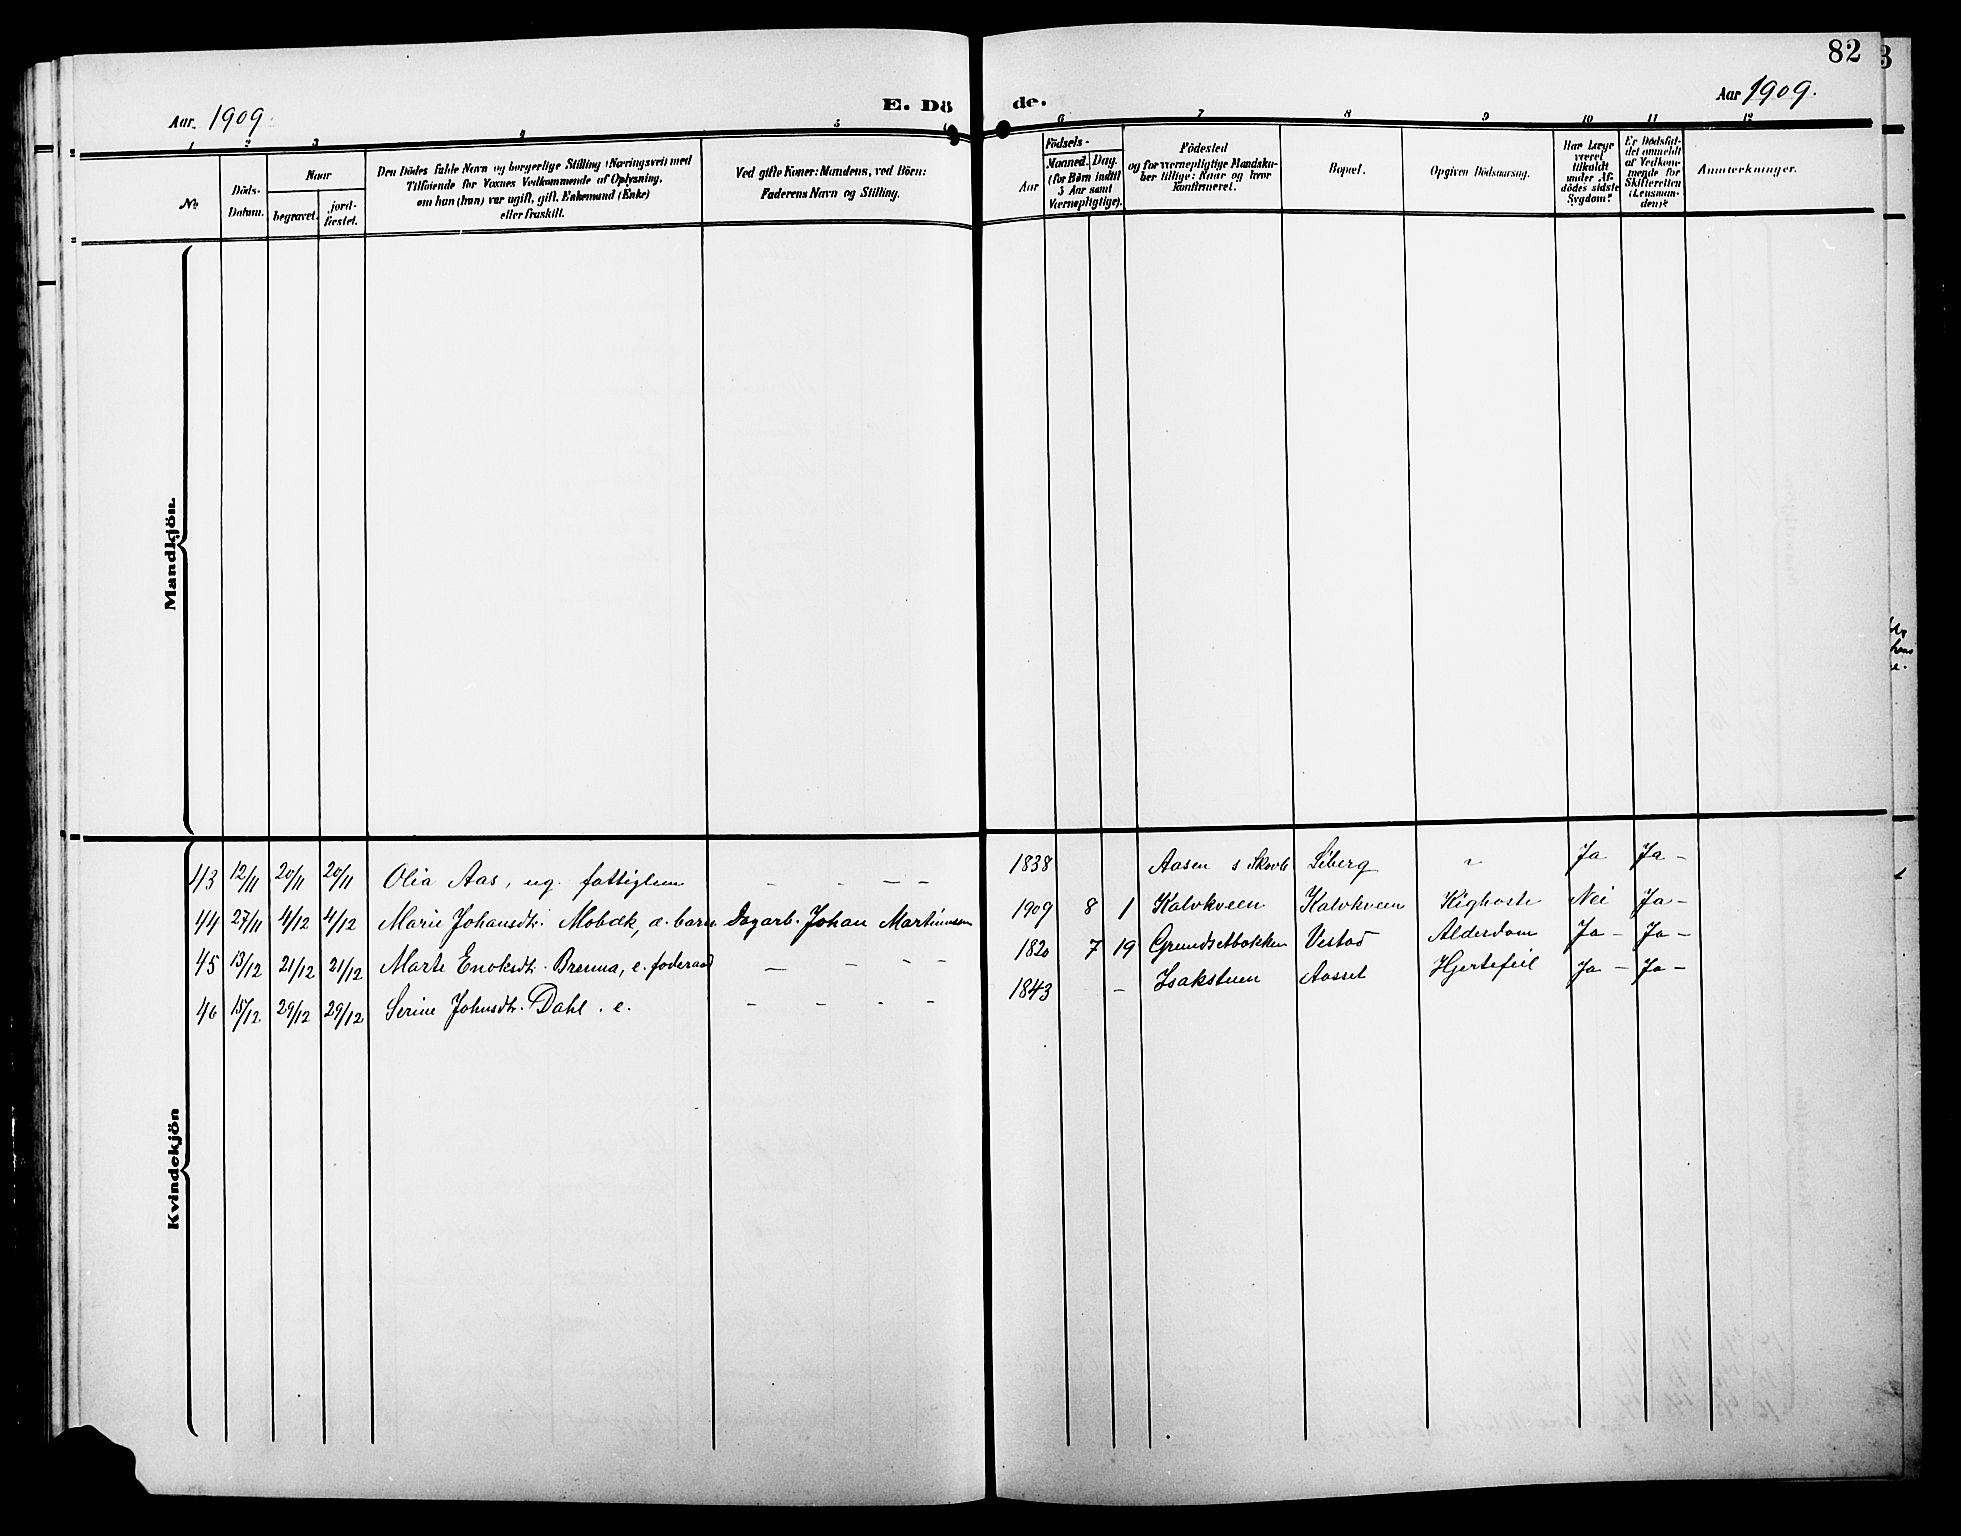 82
Aar. 1909.
E. Dö de.
Aar 1909.
1 2 3 4 5 6 7 8 9 10 11 12
No
Döds-
Datum.
Naar
begravet.
jord-
fæstet.
Den Dödes fulde Navn og borgerlige Stilling (Næringsvei) med
Tilföiende for Voxnes Vedkommende af Oplysning,
om han (hun) var ugift, gift, Enkemand (Enke)
eller fraskilt.
Ved gifte Koner: Mandens, ved Börn:
Faderens Navn og Stilling.
Födsels-
Aar
Maaned. Dag.
(for Börn indtil
5 Aar samt
Værnepligtige).
Födested
og for værnepligtige Mandsku-
ber tillige: Naar og hvor
Konfirmeret.
Bopæl.
Opgiven Dödsaarsag.
Har Læge
været
tilkaldt
under Af-
dödes sidste
Sygdom?
Er Dödsfal-
det anmeldt
af Vedkom-
mende for
Skifteretten
(Lensman-
den)?
Anmærkninger.
Mandkjön.
Kvindekjön
43 12/11 20/11 20/11 Olia Aas, ug. fattiglem - - - - 1838 Aasen s Skovb Siberg " Ja Ja -
44 27/11 4/12 4/12 Marie Johansdtr. Mobæk, a. barn Dagarb. Johan Martinusen 1909 8 1 Kalvkveen Kalvkveen Kighoste Nei Ja -
45 13/12 21/12 21/12 Marte Enoksdtr. Brenna, e. foderaad - - - - 1820 7 19 Grundsetbakken Vestad Alderdom Ja - Ja -
46 15/12 29/12 29/12 Serine Johnsdtr. Dahl. e. - - - - 1843 - Isakstuen Aasset Hjertefeil Ja - Ja -